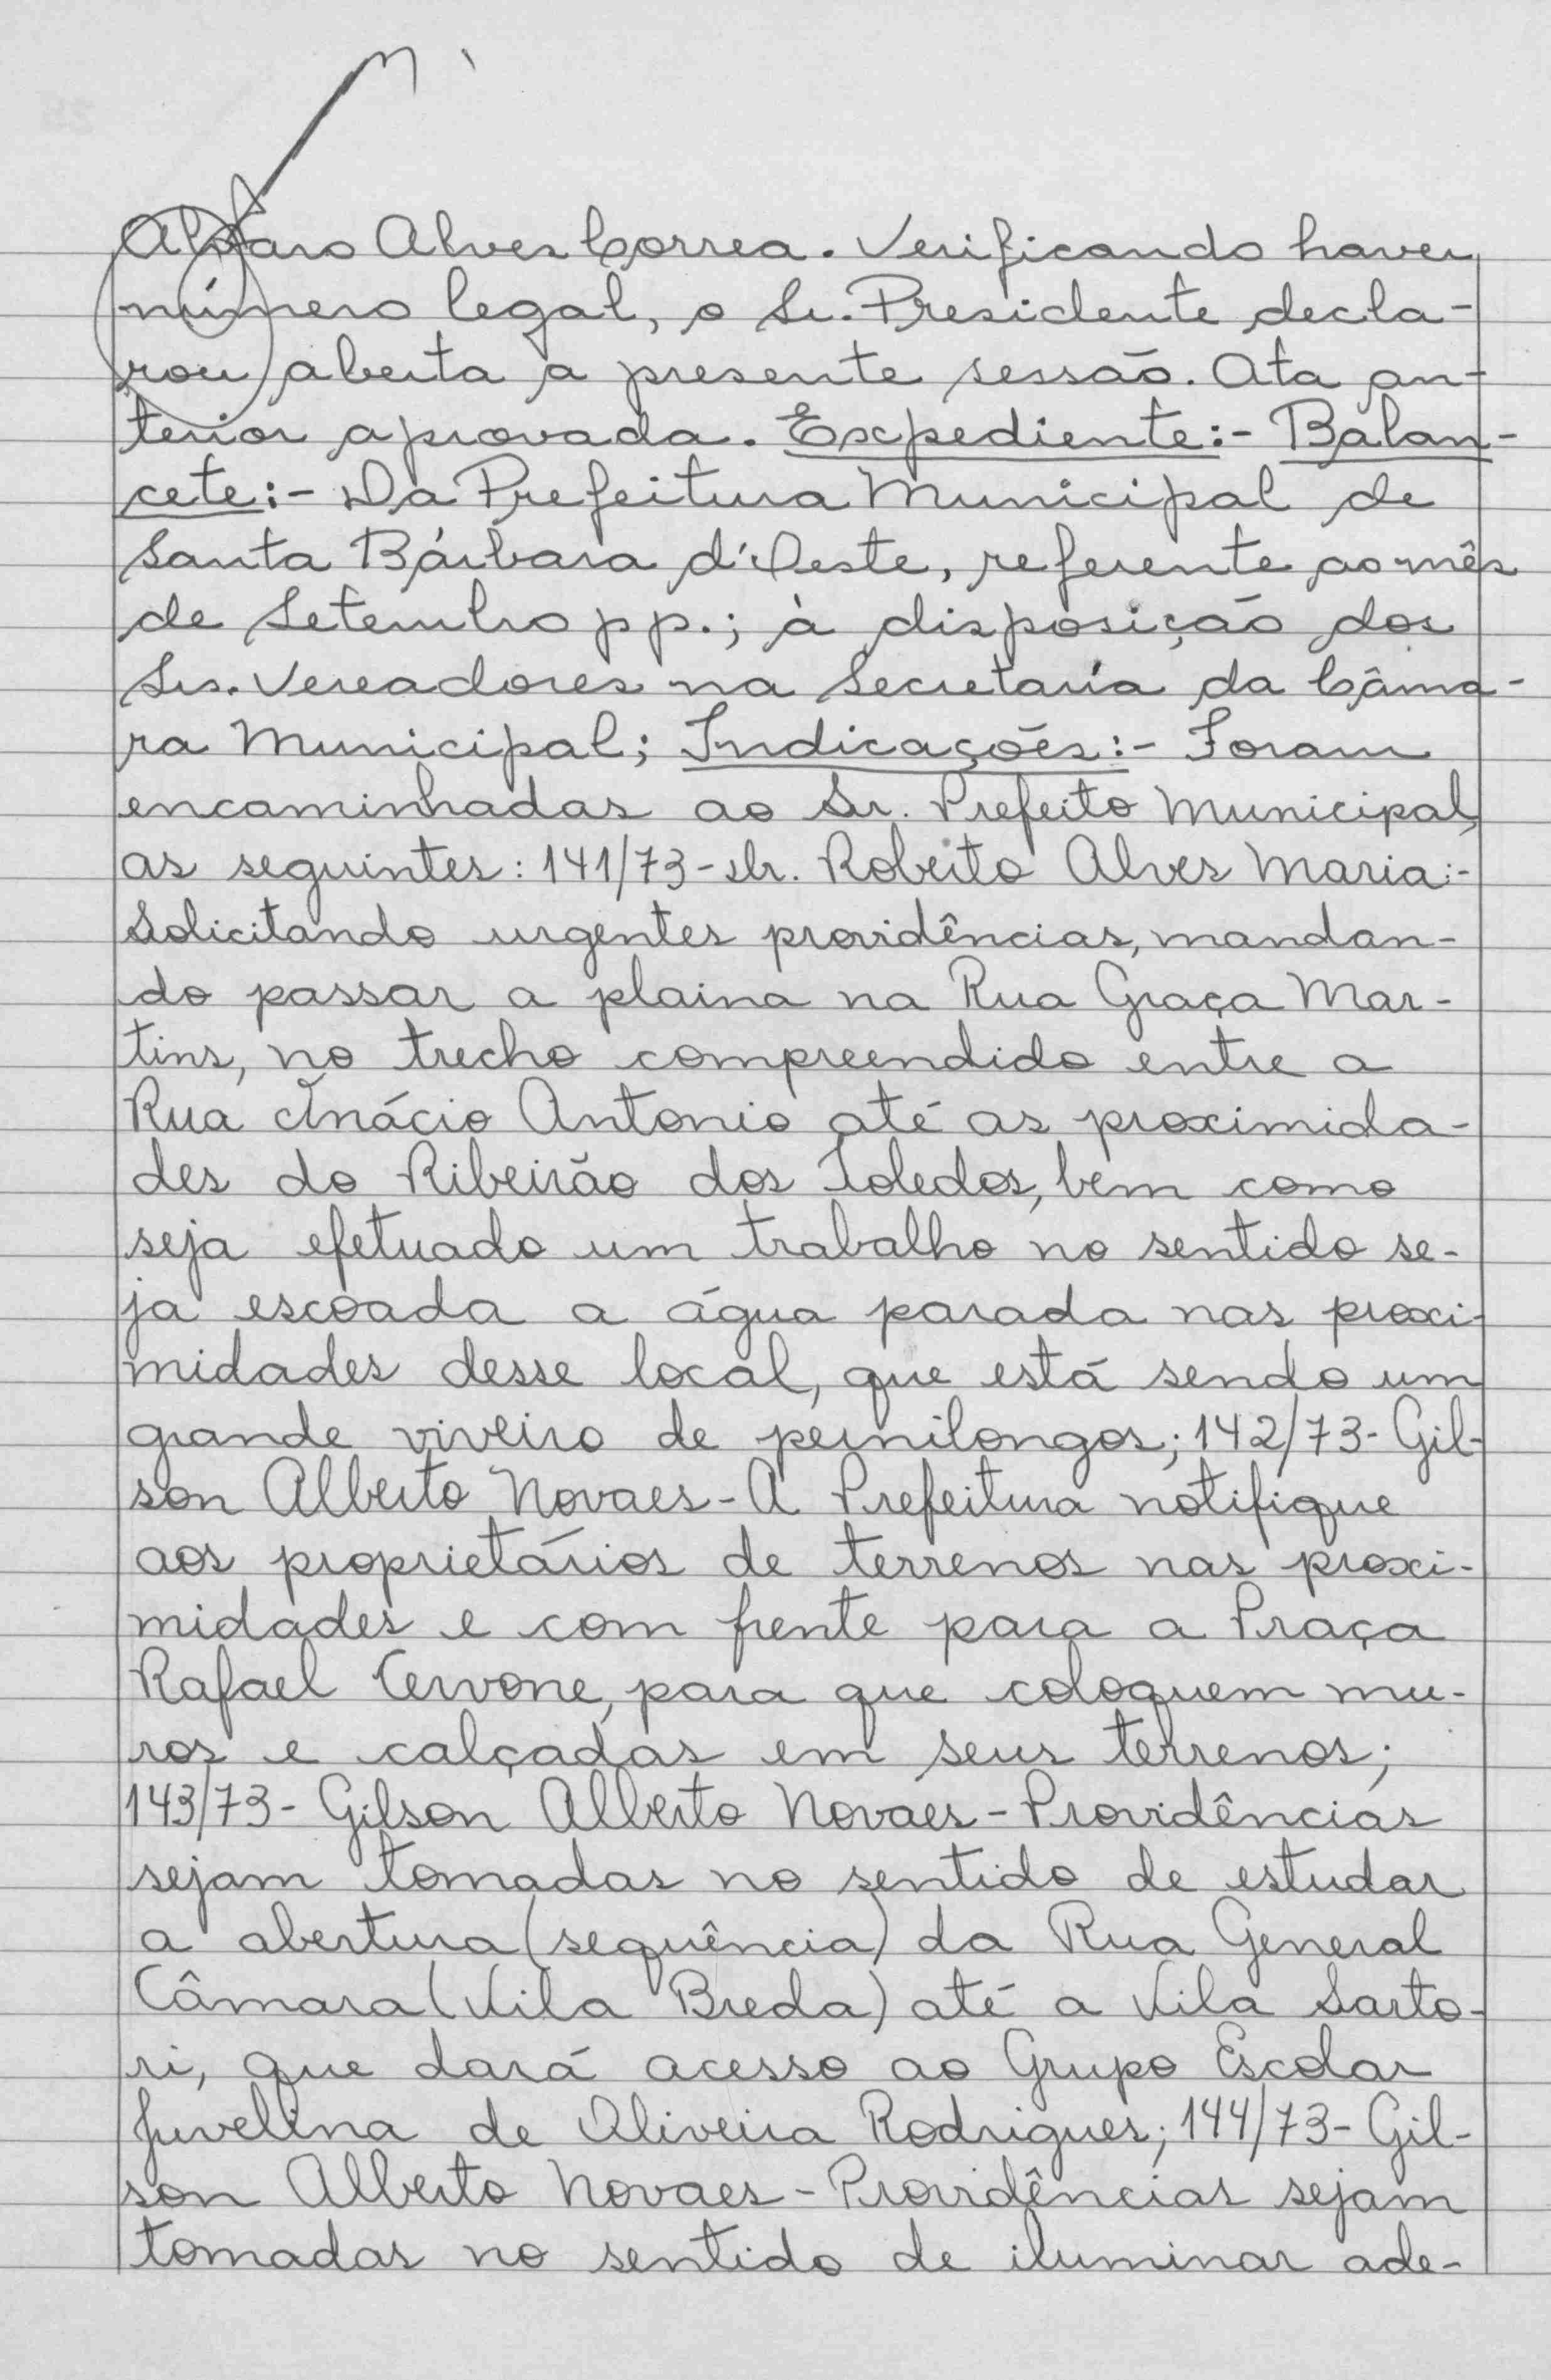 Alvaro Alves Correa. Verificando haver
número legal, o Sr. Presidente decla-
rou aberta a presente sessão. Ata an-
terior aprovada. Expediente:- Balan-
cete:- Da Prefeitura Municipal de
Santa Bárbara d'Oeste, referente ao mês
de Setembro pp.; à disposição dos
Srs. Vereadores na Secretaria da Câma-
ra Municipal; Indicações:- Foram
encaminhadas ao Sr. Prefeito Municipal,
as seguintes: 141/73-Dr. Roberto Alves Maria:-
Solicitando urgentes providências, mandan-
do passar a plaina na Rua Graça Mar-
tins, no trecho compreendido entre a
Rua Inácio Antonio até as proximida-
des do Ribeirão dos Toledos, bem como
seja efetuado um trabalho no sentido se-
ja escoada a água parada nas proxi-
midades desse local, que está sendo um
grande viveiro de pernilongos; 142/73- Gil-
son Alberto Novaes-A Prefeitura notifique
aos proprietários de terrenos nas proxi-
midades e com frente para a Praça
Rafael Cervone, para que coloquem mu-
ros e calçadas em seus terrenos;
143/73- Gilson Alberto Novaes-Providências
sejam tomadas no sentido de estudar
a abertura (sequência) da Rua General
Câmara (Vila Breda) até a Vila Sarto-
ri, que dará acesso ao Grupo Escolar
Juvelina de Oliveira Rodrigues; 144/73- Gil-
son Alberto Novaes-Providências sejam
tomadas no sentido de iluminar ade-